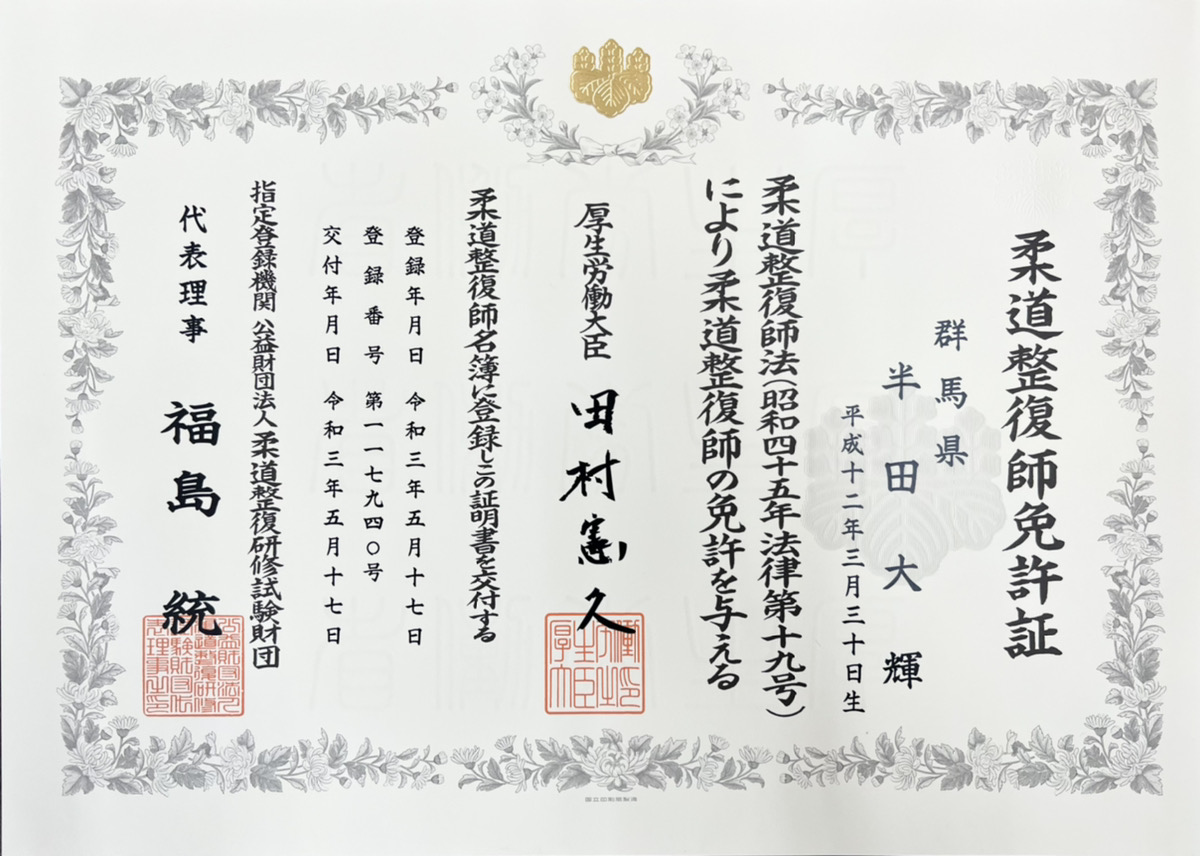 柔道整復師免許証
群馬県
半田大輝
平成十二年三月三十日生
柔道整復師法(昭和四十五年法律第十九号)
により柔道整復師の免許を与える
厚生労働大臣 田村憲久
柔道整復師名簿に登録しこの証明書を交付する
登録年月日 令和三年五月十七日
登録番号 第一一七九四〇号
交付年月日 令和三年五月十七日
指定登録機関 公益財団法人 柔道整復研修試験財団
代表理事 福島 統